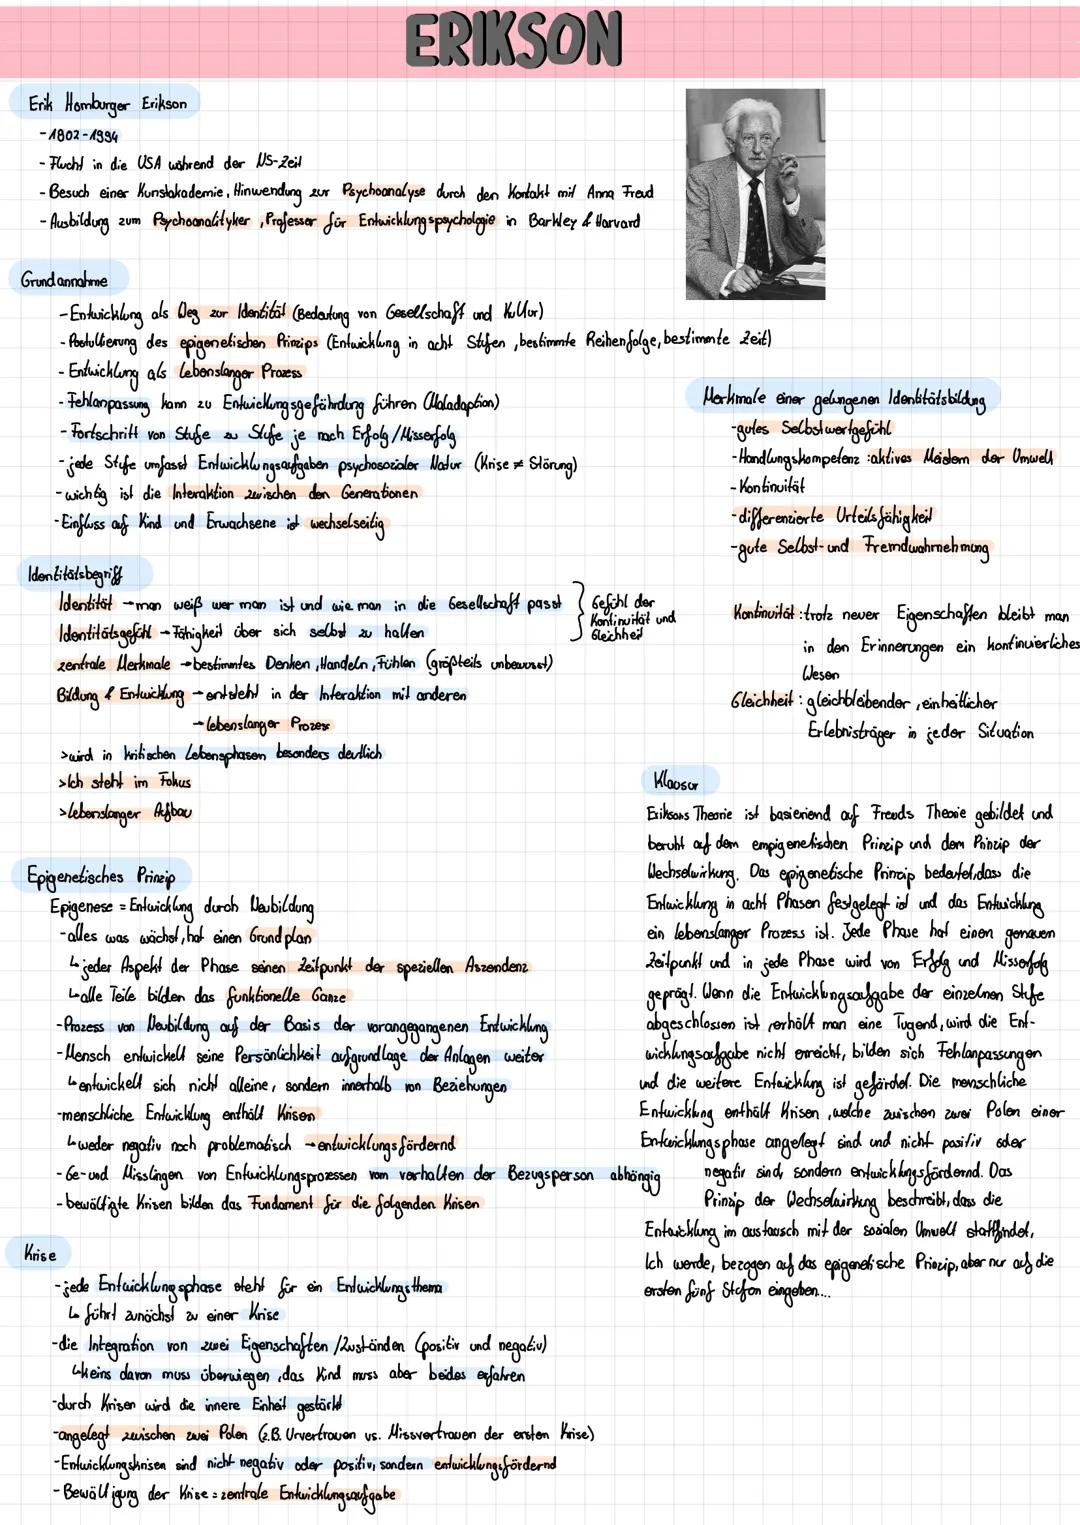 ERIKSON
Erik Homburger Erikson
-1802-1994
-Flucht in die USA während der NS-Zeit
-Besuch einer Kunstakademie, Hinwendung zur Psychoanalyse durch den Kontakt mit Anna Freud
-Ausbildung zum Psychoanalityker, Professor für Entwicklungspsychologie in Barkley & Harvard
Grundannahme
-Entwicklung als Weg zur Identität (Bedeutung von Gesellschaft und Kultur)
-Postulierung des epigenetischen Prinzips (Entwicklung in acht Stufen, bestimmte Reihenfolge, bestimmte Zeit)
-Entwicklung als lebenslanger Prozess
-Fehlanpassung kann zu Entwicklungsgefährdung führen (Maladaption)
-Fortschritt von Stufe zu Stufe je nach Erfolg/Misserfolg
-jede Stufe umfasst Entwicklungsaufgaben psychosozialer Natur (Krise ≠ Störung)
-wichtig ist die Interaktion zwischen den Generationen
-Einfluss auf Kind und Erwachsene ist wechselseitig
Merkmale einer gelungenen Identitätsbildung
-gutes Selbstwertgefühl
-Handlungskompetenz: aktives Meistern der Umwelt
-Kontinuität
-differenzierte Urteilsfähigkeit
-gute Selbst- und Fremdwahrnehmung
Identitätsbegriff
Identität → man weiß wer man ist und wie man in die Gesellschaft passt
Identitätsgefühl → Fähigkeit über sich selbst zu halten
} Gefühl der
Kontinuität und
Gleichheit
zentrale Merkmale → bestimmtes Denken, Handeln, Fühlen (größteils unbewusst)
Bildung & Entwicklung → entsteht in der Interaktion mit anderen
→ lebenslanger Prozess
>wird in kritischen Lebensphasen besonders deutlich
>Ich steht im Fokus
>lebenslanger Aufbau
Kontinuität: trotz neuer Eigenschaften bleibt man
in den Erinnerungen ein kontinuierliches
Wesen
Gleichheit: gleichbleibender, einheitlicher
Erlebnisträger in jeder Situation
Epigenetisches Prinzip
Epigenese = Entwicklung durch Neubildung
-alles was wächst, hat einen Grundplan
↳ jeder Aspekt der Phase seinen Zeitpunkt der speziellen Aszendenz
↳ alle Teile bilden das funktionelle Ganze
-Prozess von Neubildung auf der Basis der vorangegangenen Entwicklung
-Mensch entwickelt seine Persönlichkeit aufgrundlage der Anlagen weiter
↳ entwickelt sich nicht alleine, sondern innerhalb von Beziehungen
-menschliche Entwicklung enthält Krisen
↳ weder negativ noch problematisch → entwicklungsfördernd
-Ge- und Misslingen von Entwicklungsprozessen vom verhalten der Bezugsperson abhängig
-bewältigte Krisen bilden das Fundament für die folgenden Krisen
Krise
-jede Entwicklungsphase steht für ein Entwicklungsthema
↳ führt zunächst zu einer Krise
-die Integration von zwei Eigenschaften/Zuständen (positiv und negativ)
↳ keins davon muss überwiegen, das Kind muss aber beides erfahren
-durch Krisen wird die innere Einheit gestärkt
-angelegt zwischen zwei Polen (z.B. Urvertrauen vs. Missvertrauen der ersten Krise)
-Entwicklungskrisen sind nicht negativ oder positiv, sondern entwicklungsfördernd
-Bewältigung der Krise = zentrale Entwicklungsaufgabe
Klausur
Eriksons Theorie ist basierend auf Freuds Theorie gebildet und
beruht auf dem empigenetischen Prinzip und dem Prinzip der
Wechselwirkung. Das epigenetische Prinzip bedeutet, dass die
Entwicklung in acht Phasen festgelegt ist und das Entwicklung
ein lebenslanger Prozess ist. Jede Phase hat einen genauen
Zeitpunkt und in jede Phase wird von Erfolg und Misserfolg
geprägt. Wenn die Entwicklungsaufgabe der einzelnen Stufe
abgeschlossen ist, erhält man eine Tugend, wird die Ent-
wicklungsaufgabe nicht erreicht, bilden sich Fehlanpassungen
und die weitere Entwicklung ist gefärdet. Die menschliche
Entwicklung enthält Krisen, welche zwischen zwei Polen einer
Entwicklungsphase angelegt sind und nicht positiv oder
negativ sind, sondern entwicklungsfördernd. Das
Prinzip der Wechselwirkung beschreibt, dass die
Entwicklung im austausch mit der sozialen Umwelt stattfindet,
Ich werde, bezogen auf das epigenetische Prinzip, aber nur auf die
ersten fünf Stufen eingehen...